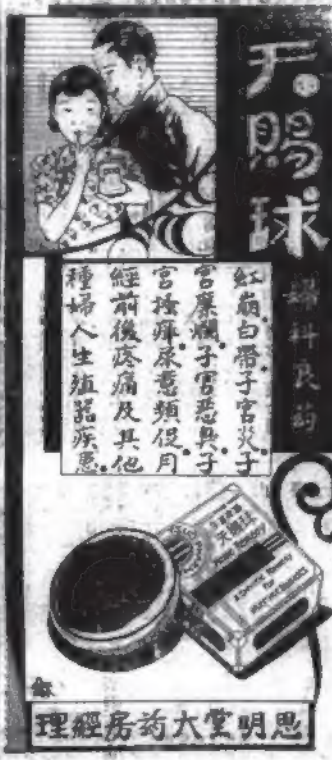 天賜球
婦科良药
紅崩白帶子宮炎子
宮糜爛子宮惡臭子
宮搔痒尿意頻促月
經前後疼痛及其他
種婦人生殖器疾患
天賜球
思明堂大药房經理